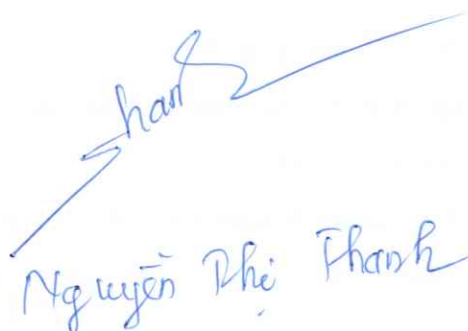 Thanh
Nguyễn Thị Thanh